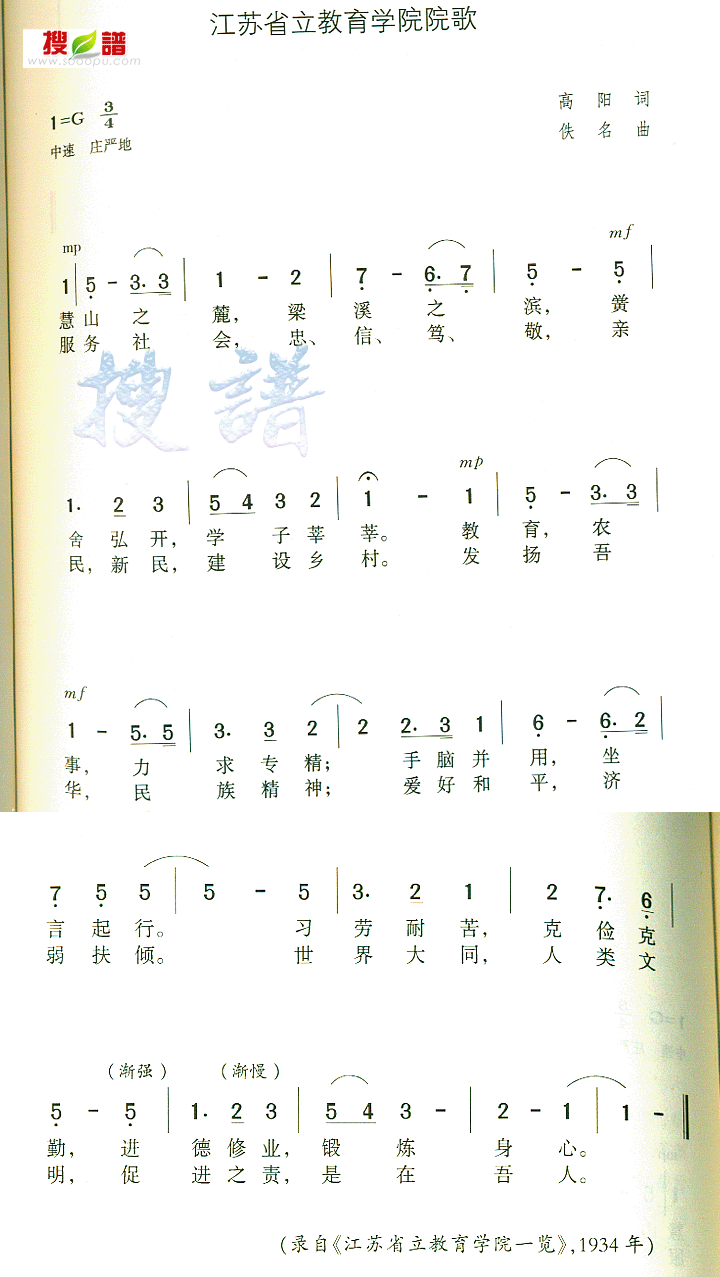 江苏省立教育学院院歌
搜 譜
www.sooopu.com
1=G 3/4
高 阳 词
中速 庄严地
佚 名 曲
mp mf
1 | 5 - 3. 3 | 1 - 2 | 7 - 6. 7 | 5 - 5 |
慧 山 之 麓, 梁 溪 之 滨, 黉
服 务 社 会, 忠、 信、 笃、 敬, 亲
搜 譜
mp
1. 2 3 | 5 4 3 2 | 1 - 1 | 5 - 3. 3 |
舍 弘 开, 学 子 莘 莘。 教 育, 农
民, 新 民, 建 设 乡 村。 发 扬 吾
mf
1 - 5. 5 | 3. 3 2 | 2 2. 3 1 | 6 - 6. 2 |
事, 力 求 专 精; 手 脑 并 用, 坐
华, 民 族 精 神; 爱 好 和 平, 济
7 5 5 | 5 - 5 | 3. 2 1 | 2 7. 6 |
言 起 行。 习 劳 耐 苦, 克 俭 克
弱 扶 倾。 世 界 大 同, 人 类 文
(渐强) (渐慢)
5 - 5 | 1. 2 3 | 5 4 3 - | 2 - 1 | 1 - ||
勤, 进 德 修 业, 锻 炼 身 心。
明, 促 进 之 责, 是 在 吾 人。
(录自《江苏省立教育学院一览》,1934 年)